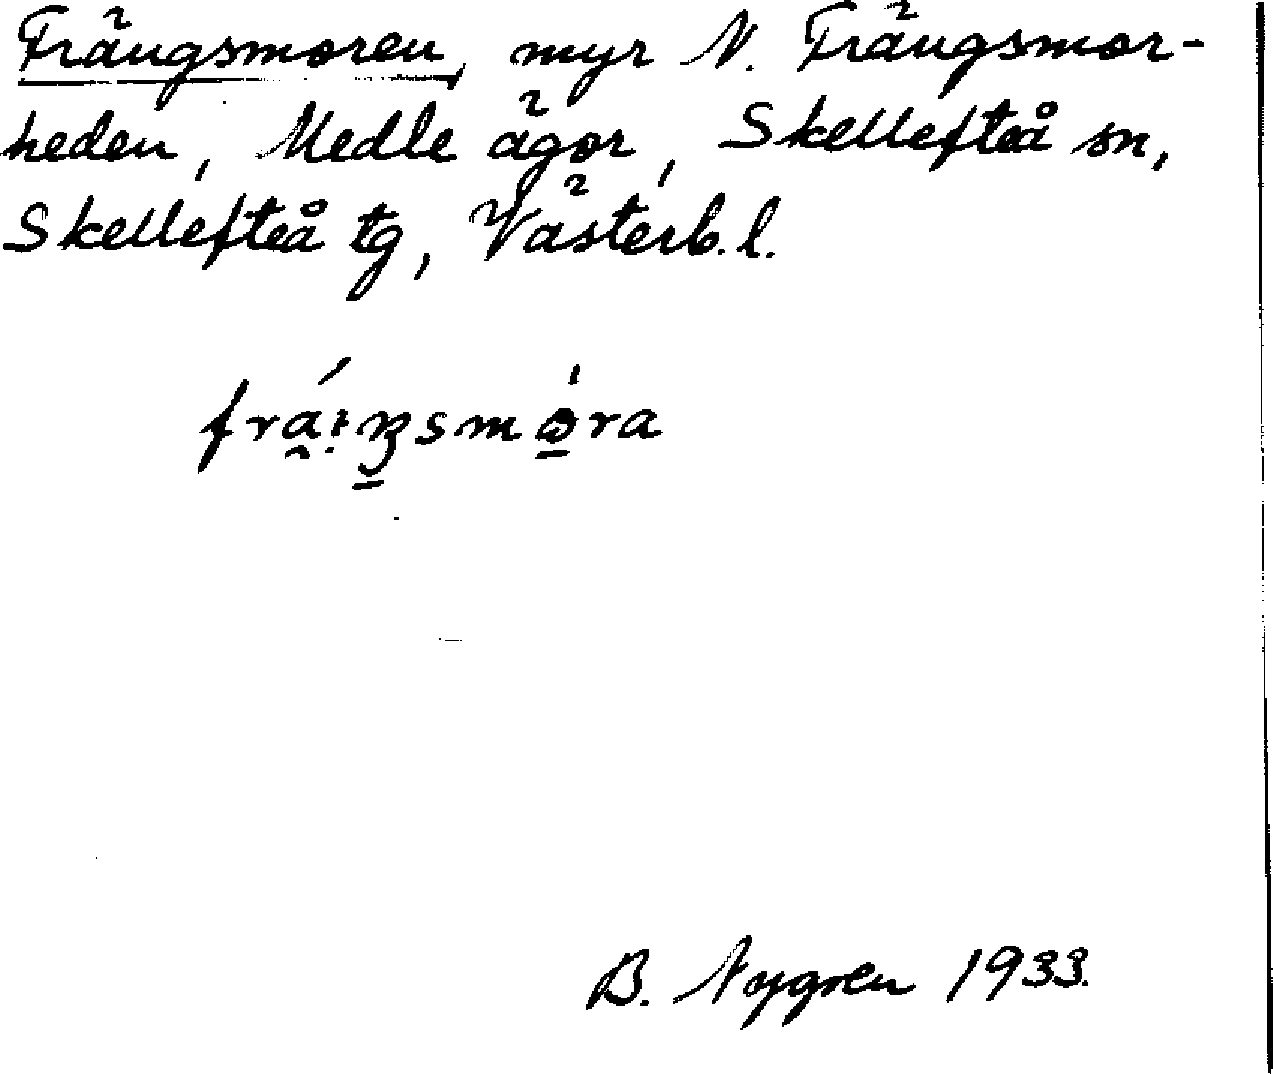 Frängsmoren, myr N. Frängsmor-
heden, Medle ägor, Skellefteå sn,
Skellefteå tg, Västerb. l.
B. Nygren 1933.